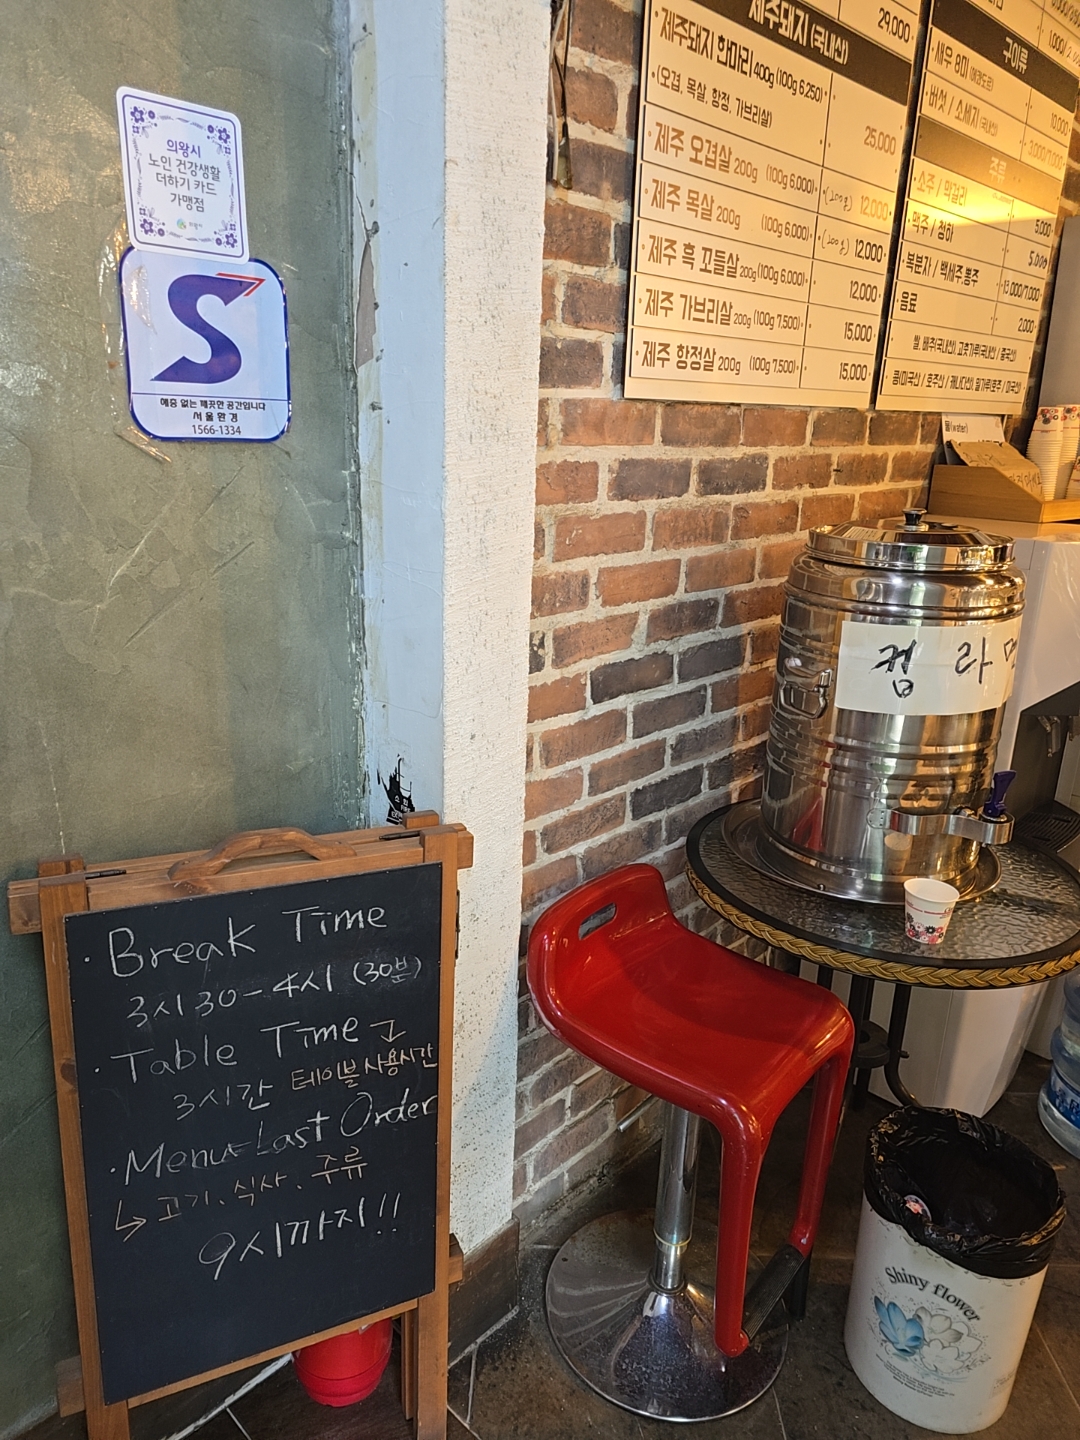 의왕시
노인 건강생활
더하기 카드
가맹점
의왕시
S
해충 없는 깨끗한 공간입니다
서울환경
1566-1334
· Break Time
3시30-4시 (30분)
· Table Time
3시간 테이블 사용시간
· Menu Last Order
↳ 고기. 식사. 주류
9시까지!!
29,000
제주돼지 (국내산)
제주돼지 한마리 400g (100g 6,250)
(오겹, 목살, 항정, 가브리살)
25,000
제주 오겹살 200g (100g 6,000) (200g) 12,000
제주 목살 200g (100g 6,000) (200g) 12,000
제주 흑 꼬들살 200g (100g 6,000) 12,000
제주 가브리살 200g (100g 7,500) 15,000
제주 항정살 200g (100g 7,500) 15,000
구이류
새우 8미 (에콰도르) 10,000
버섯 / 소세지 (국내산) 3,000/7,000
주류
소주 / 막걸리 5,000
맥주 / 청하 5,000
복분자 / 백세주.뽕주 13,000/7,000
음료 2,000
쌀, 배추(국내산) 고춧가루(국내산 / 중국산)
물(water)
컵 라
Shiny flower